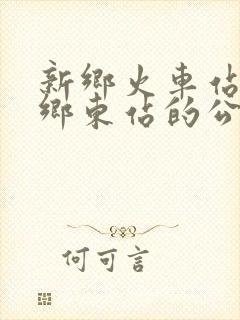 新鄉火車佔
鄉東佔的公
何可言